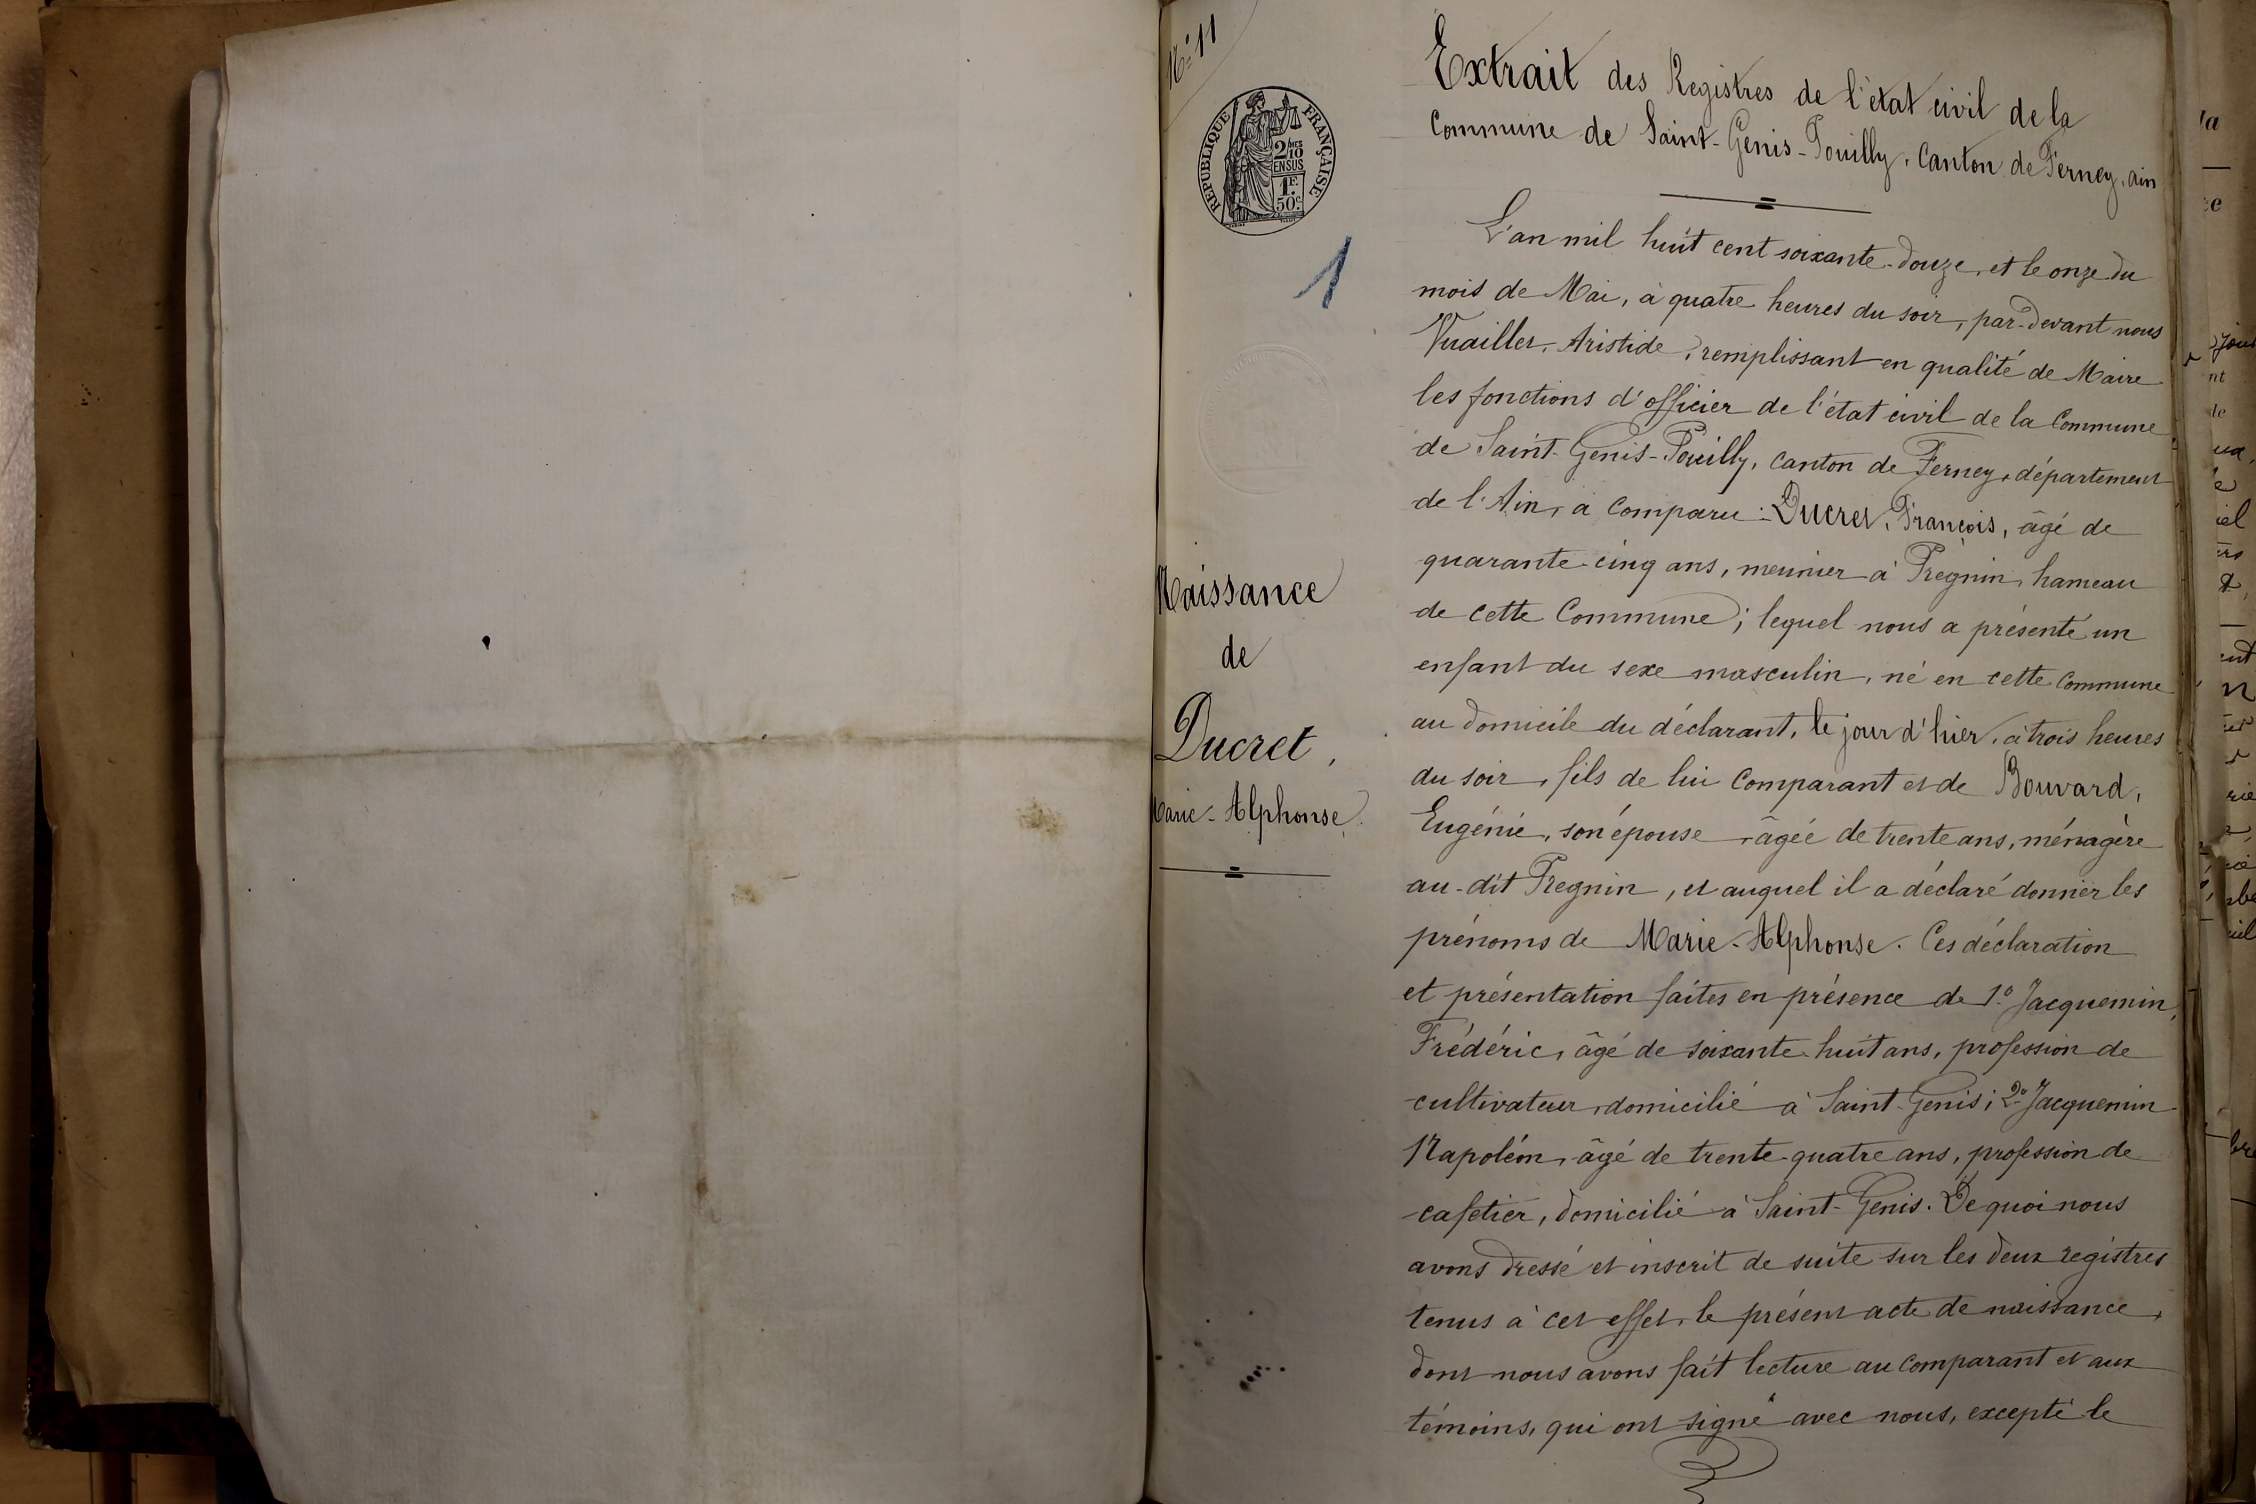 N° 11
RÉPUBLIQUE FRANÇAISE
2 MES
10
EN SUS
1 F.
50 C.
1
Naissance
de
Ducret,
Marie-Alphonse.
Extrait des Registres de l'état civil de la
Commune de Saint-Genis-Pouilly, Canton de Ferney, ain
L'an mil huit cent soixante-douze, et le onze du
mois de Mai, à quatre heures du soir, par-devant nous
Vuaillet, Aristide, remplissant en qualité de Maire
les fonctions d'officier de l'état civil de la Commune
de Saint-Genis-Pouilly, canton de Ferney, département
de l'Ain, a comparu : Ducret, François, âgé de
quarante-cinq ans, meunier à Pregnin, hameau
de cette Commune ; lequel nous a présenté un
enfant du sexe masculin, né en cette Commune
au domicile du déclarant, le jour d'hier, à trois heures
du soir, fils de lui Comparant et de Bouvard,
Eugénie, son épouse, âgée de trente ans, ménagère
au-dit Pregnin, et auquel il a déclaré donner les
prénoms de Marie-Alphonse. Ces déclaration
et présentation faites en présence de 1° Jacquemin,
Frédéric, âgé de soixante-huit ans, profession de
cultivateur, domicilié à Saint-Genis ; 2° Jacquemin
Napoléon, âgé de trente-quatre ans, profession de
cafetier, domicilié à Saint-Genis. De quoi nous
avons dressé et inscrit de suite sur les deux registres
tenus à cet effet, le présent acte de naissance,
dont nous avons fait lecture au Comparant et aux
témoins, qui ont signé avec nous, excepté le